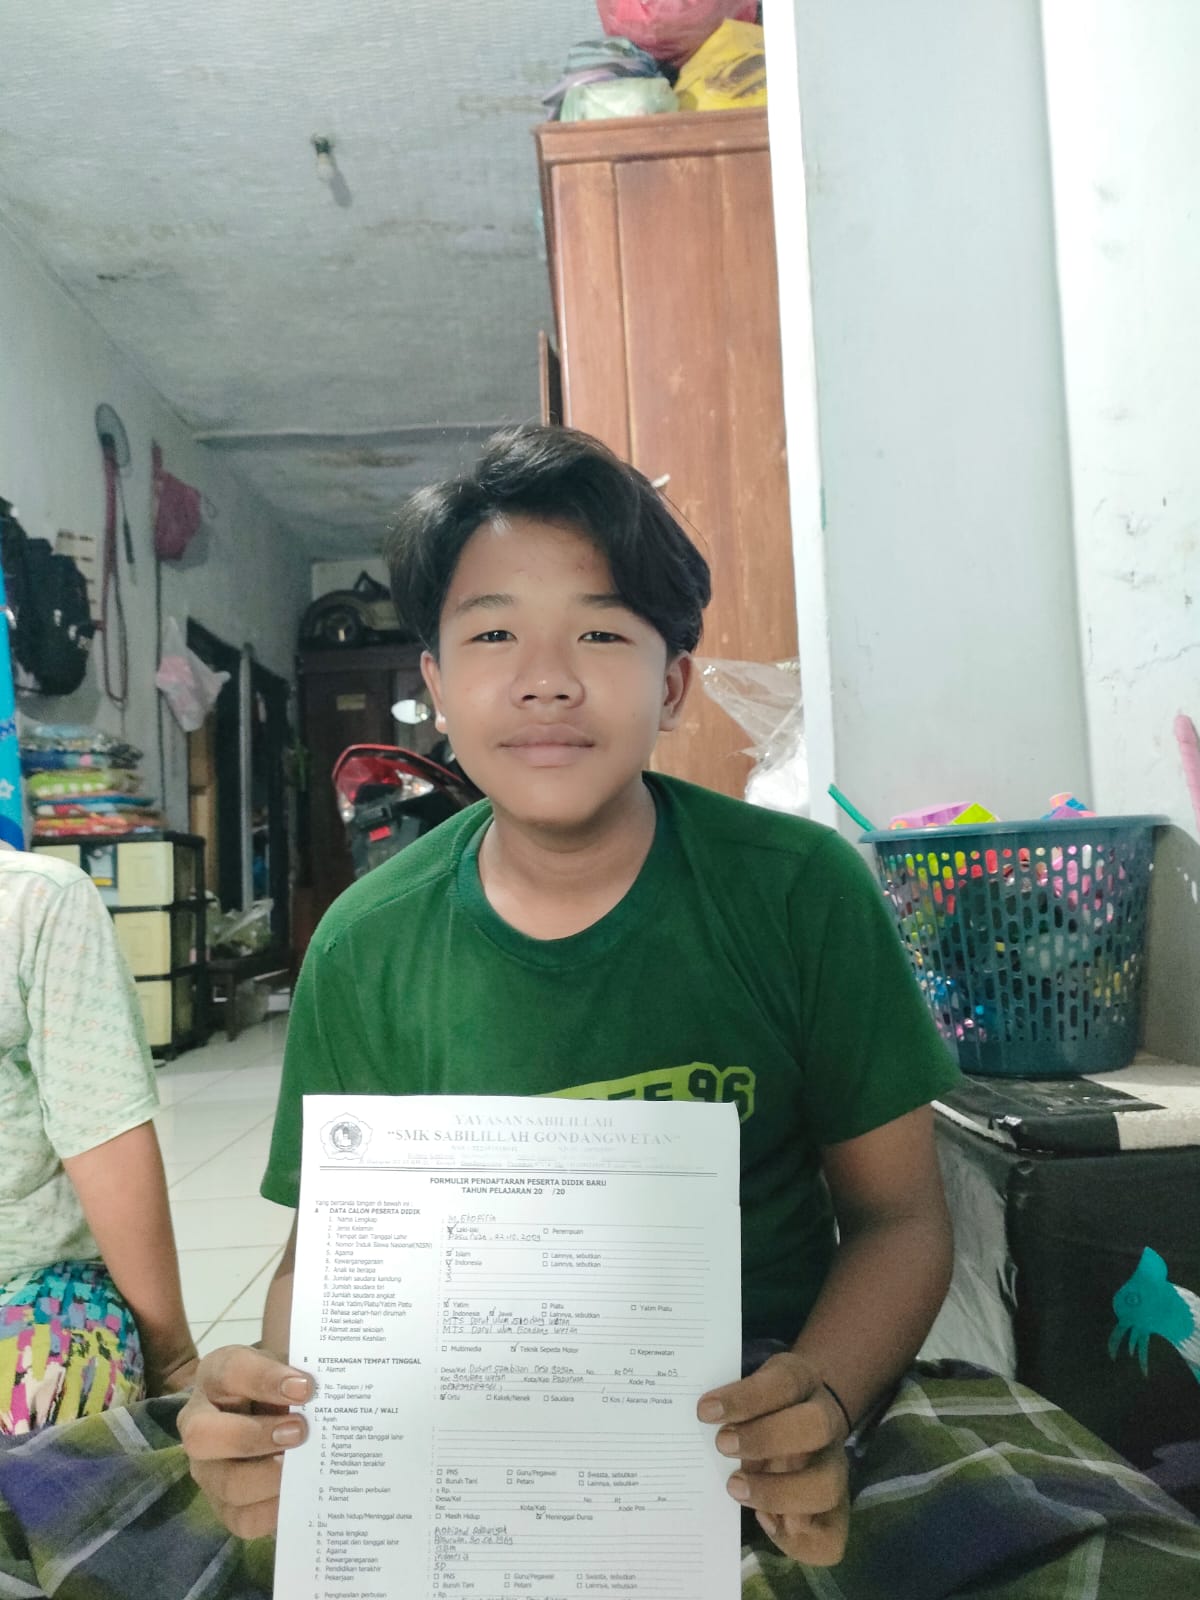 96
YAYASAN SABILILLAH
"SMK SABILILLAH GONDANGWETAN"
FORMULIR PENDAFTARAN PESERTA DIDIK BARU
TAHUN PELAJARAN 20 /20
Yang bertanda tangan di bawah ini :
A DATA CALON PESERTA DIDIK
1. Nama Lengkap :
2. Jenis Kelamin : Laki-laki Perempuan
3. Tempat dan Tanggal Lahir : Pasuruan, 22.10.2009
4. Nomor Induk Siswa Nasional(NISN) :
5. Agama : Islam Lainnya, sebutkan
6. Kewarganegaraan : Indonesia Lainnya, sebutkan
7. Anak ke berapa : 3
8. Jumlah saudara kandung : 3
9. Jumlah saudara tiri
10 Jumlah saudara angkat
11 Anak Yatim/Piatu/Yatim Piatu : Yatim Piatu Yatim Piatu
12 Bahasa sehari-hari dirumah : Indonesia Jawa Lainnya, sebutkan
13 Asal sekolah : MTS Darul ulum Gondang wetan
14 Alamat asal sekolah : MTS Darul ulum Gondang wetan
15 Kompetensi Keahlian :
Multimedia Teknik Sepeda Motor Keperawatan
B KETERANGAN TEMPAT TINGGAL
1. Alamat : Desa/Kel Dusun sambisan Desa No. Rt 04 Rw 03
Kec gondang wetan Kota/Kab Pasuruan Kode Pos
2. No. Telepon / HP :
3. Tinggal bersama : Ortu Kakek/Nenek Saudara Kos / Asrama /Pondok
C DATA ORANG TUA / WALI
1. Ayah
a. Nama lengkap :
b. Tempat dan tanggal lahir :
c. Agama :
d. Kewarganegaraan :
e. Pendidikan terakhir :
f. Pekerjaan : PNS Guru/Pegawai Swasta, sebutkan
Buruh Tani Petani Lainnya, sebutkan
g. Penghasilan perbulan : ± Rp.
h. Alamat : Desa/Kel No Rt Rw
Kec Kota/Kab Kode Pos
i. Masih hidup/Meninggal dunia : Masih Hidup Meninggal Dunia
2. Ibu
a. Nama lengkap :
b. Tempat dan tanggal lahir : Pasuruan, 30.06.1969
c. Agama : islam
d. Kewarganegaraan : indonesia
e. Pendidikan terakhir : SD
f. Pekerjaan : PNS Guru/Pegawai Swasta, sebutkan
Buruh Tani Petani Lainnya, sebutkan
g. Penghasilan perbulan : ± Rp.